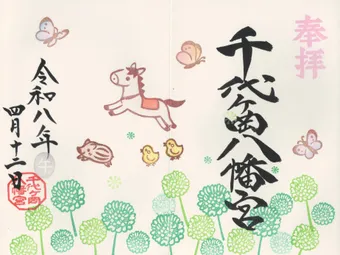 奉拝
千代ヶ岡八幡宮
令和八年
四月十二日
千代ヶ岡
八幡宮